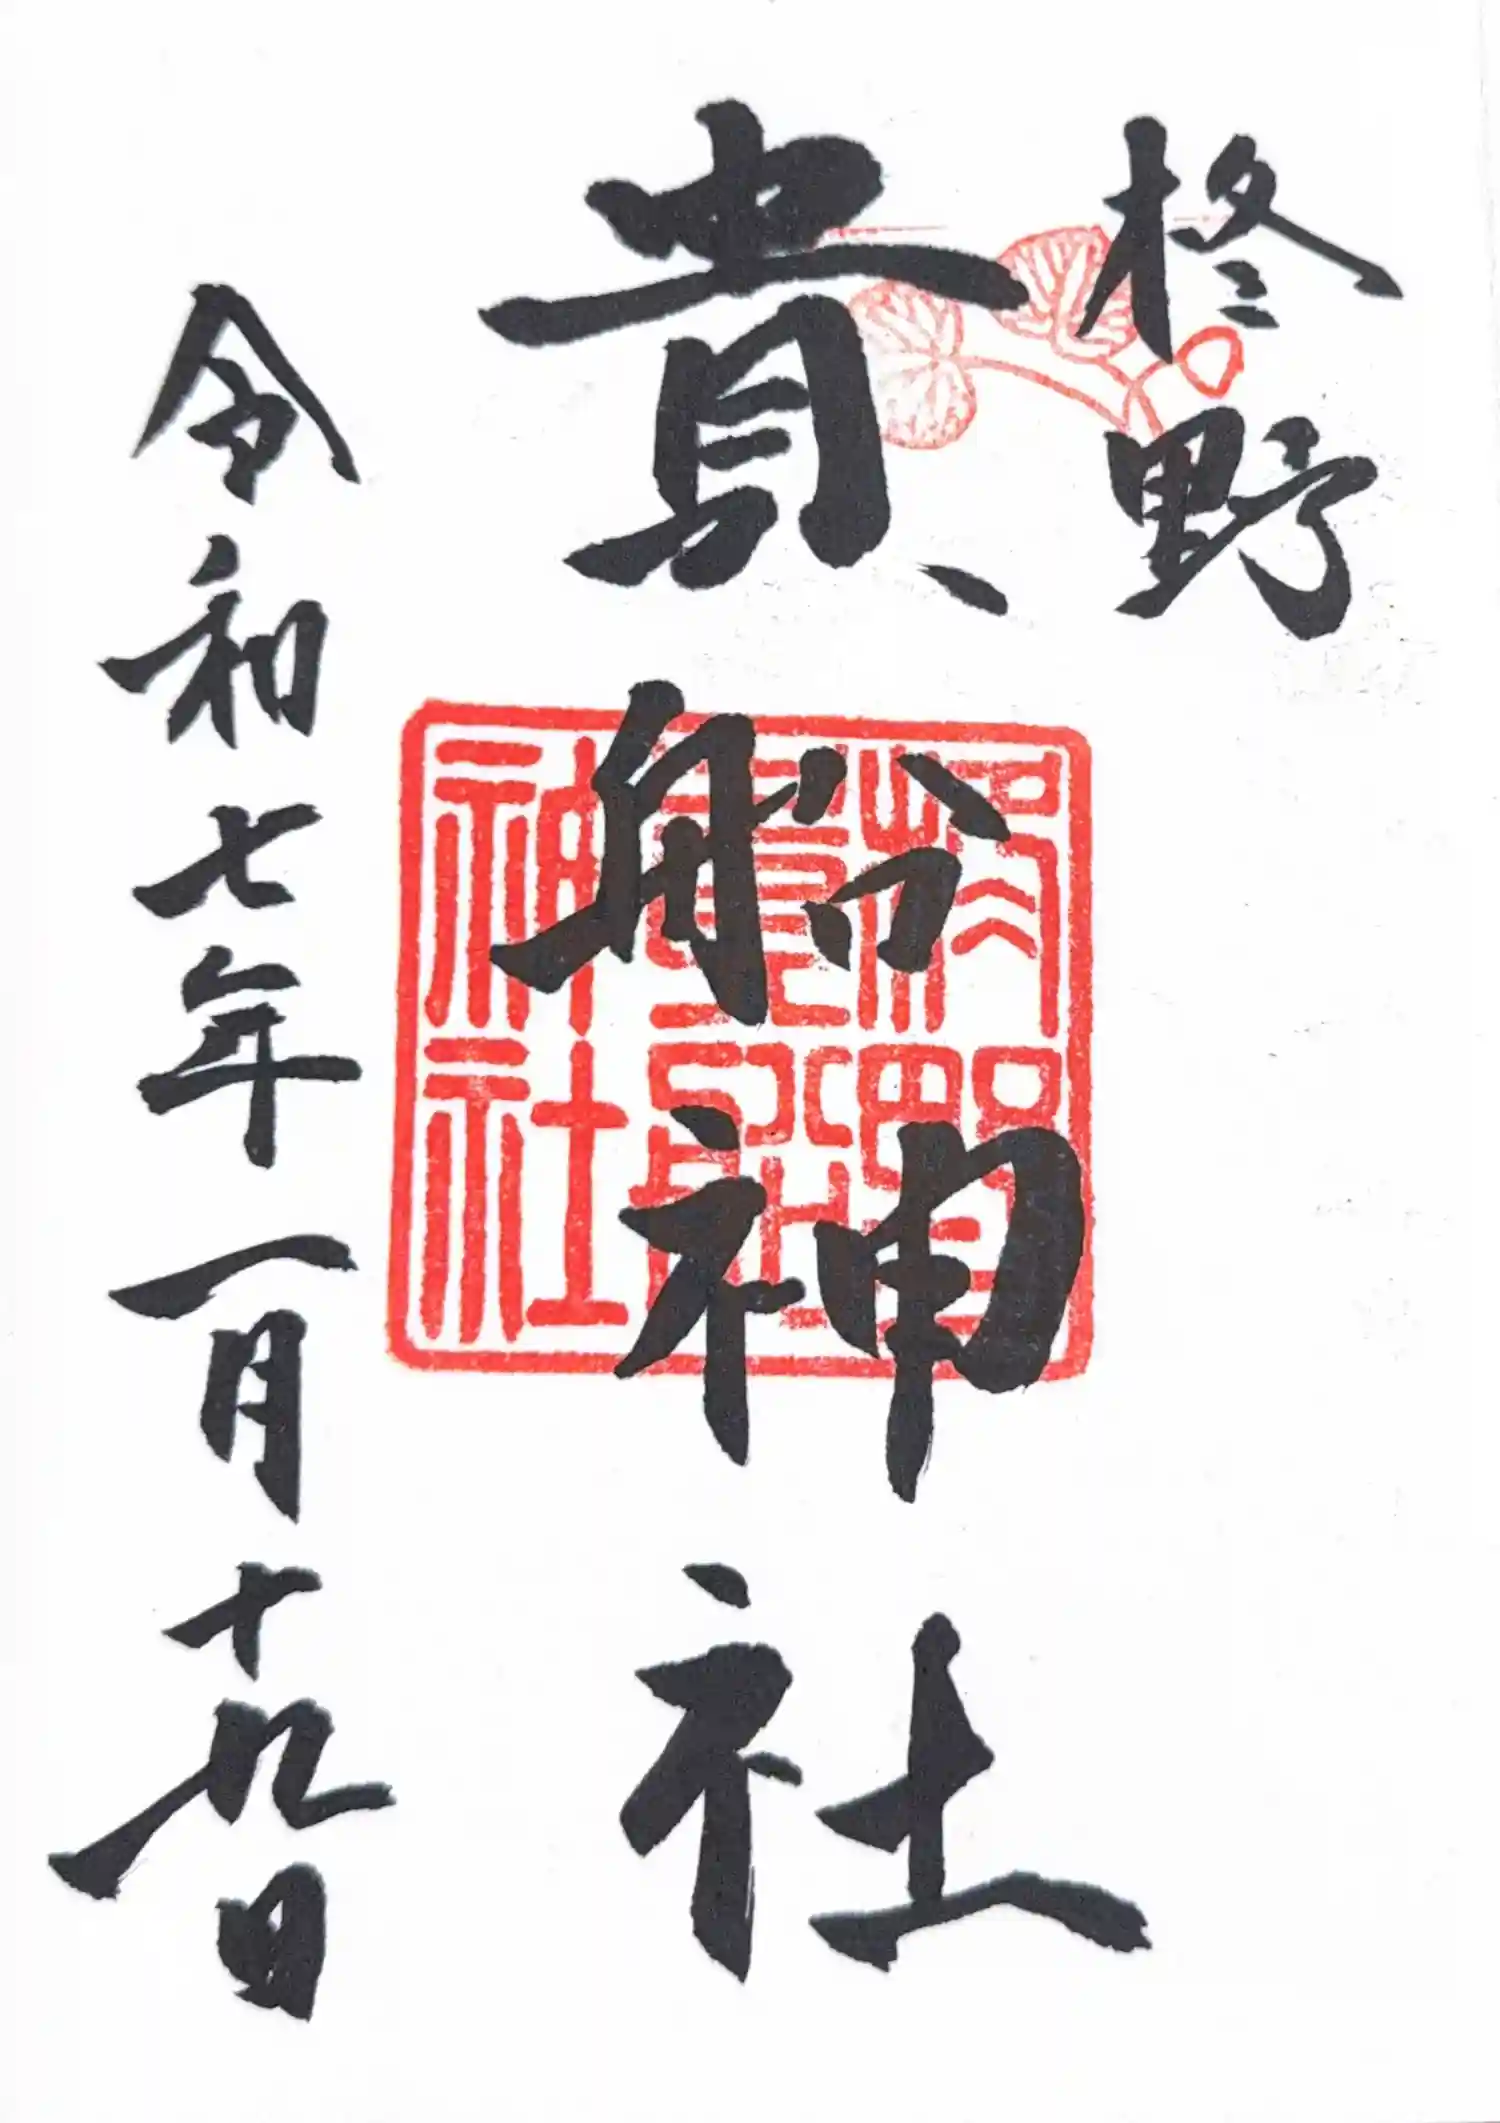 柊野
貴船神社
令和七年一月十九日
柊野
貴船
神社